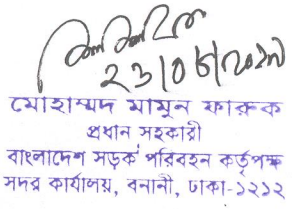 ২৩/০৮/২০১৭
মোহাম্মদ মামুন ফারুক
প্রধান সহকারী
বাংলাদেশ সড়ক পরিবহন কর্তৃপক্ষ
সদর কার্যালয়, বনানী, ঢাকা-১২১২